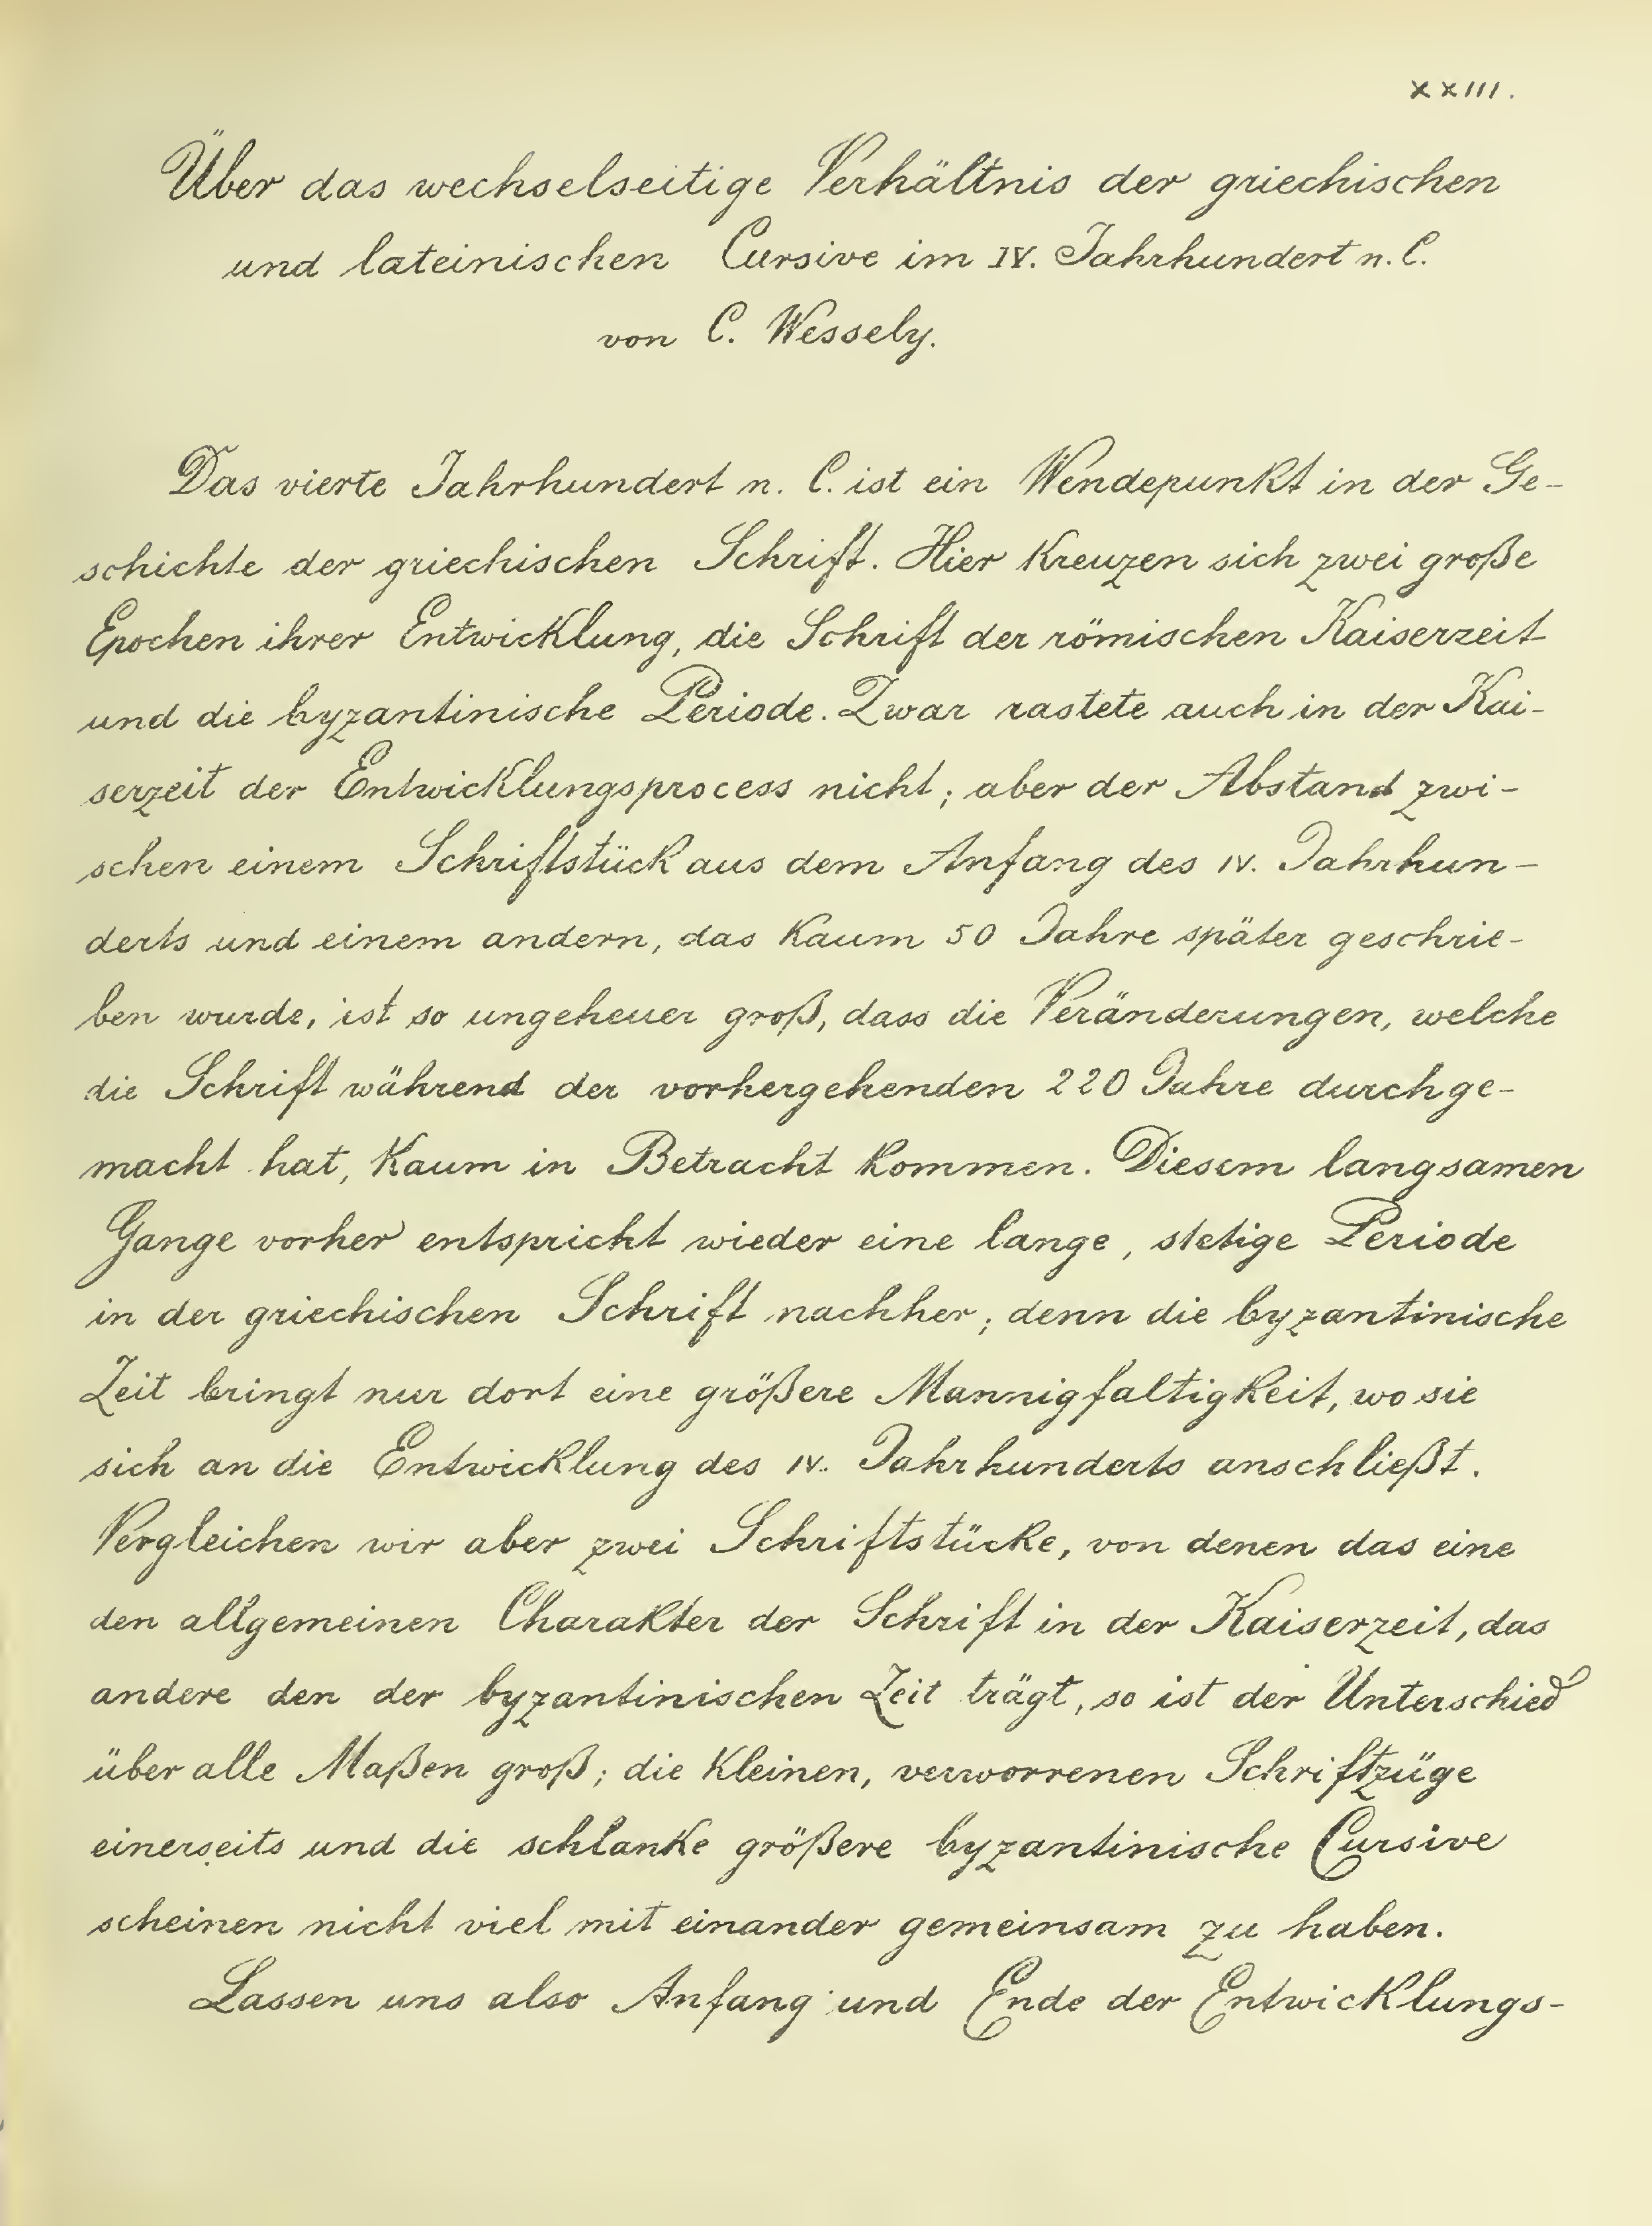 XXIII.
Über das wechselseitige Verhältnis der griechischen
und lateinischen Cursive im IV. Jahrhundert n. C.
von C. Wessely.
Das vierte Jahrhundert n. C. ist ein Wendepunkt in der Ge-
schichte der griechischen Schrift. Hier kreuzen sich zwei große
Epochen ihrer Entwicklung, die Schrift der römischen Kaiserzeit
und die byzantinische Periode. Zwar rastete auch in der Kai-
serzeit der Entwicklungsprocess nicht; aber der Abstand zwi-
schen einem Schriftstück aus dem Anfang des IV. Jahrhun-
derts und einem andern, das kaum 50 Jahre später geschrie-
ben wurde, ist so ungeheuer groß, dass die Veränderungen, welche
die Schrift während der vorhergehenden 220 Jahre durchge-
macht hat, kaum in Betracht kommen. Diesem langsamen
Gange vorher entspricht wieder eine lange, stetige Periode
in der griechischen Schrift nachher; denn die byzantinische
Zeit bringt nur dort eine größere Mannigfaltigkeit, wo sie
sich an die Entwicklung des IV. Jahrhunderts anschließt.
Vergleichen wir aber zwei Schriftstücke, von denen das eine
den allgemeinen Charakter der Schrift in der Kaiserzeit, das
andere den der byzantinischen Zeit trägt, so ist der Unterschied
über alle Maßen groß; die kleinen, verworrenen Schriftzüge
einerseits und die schlanke größere byzantinische Cursive
scheinen nicht viel mit einander gemeinsam zu haben.
Lassen uns also Anfang und Ende der Entwicklungs-